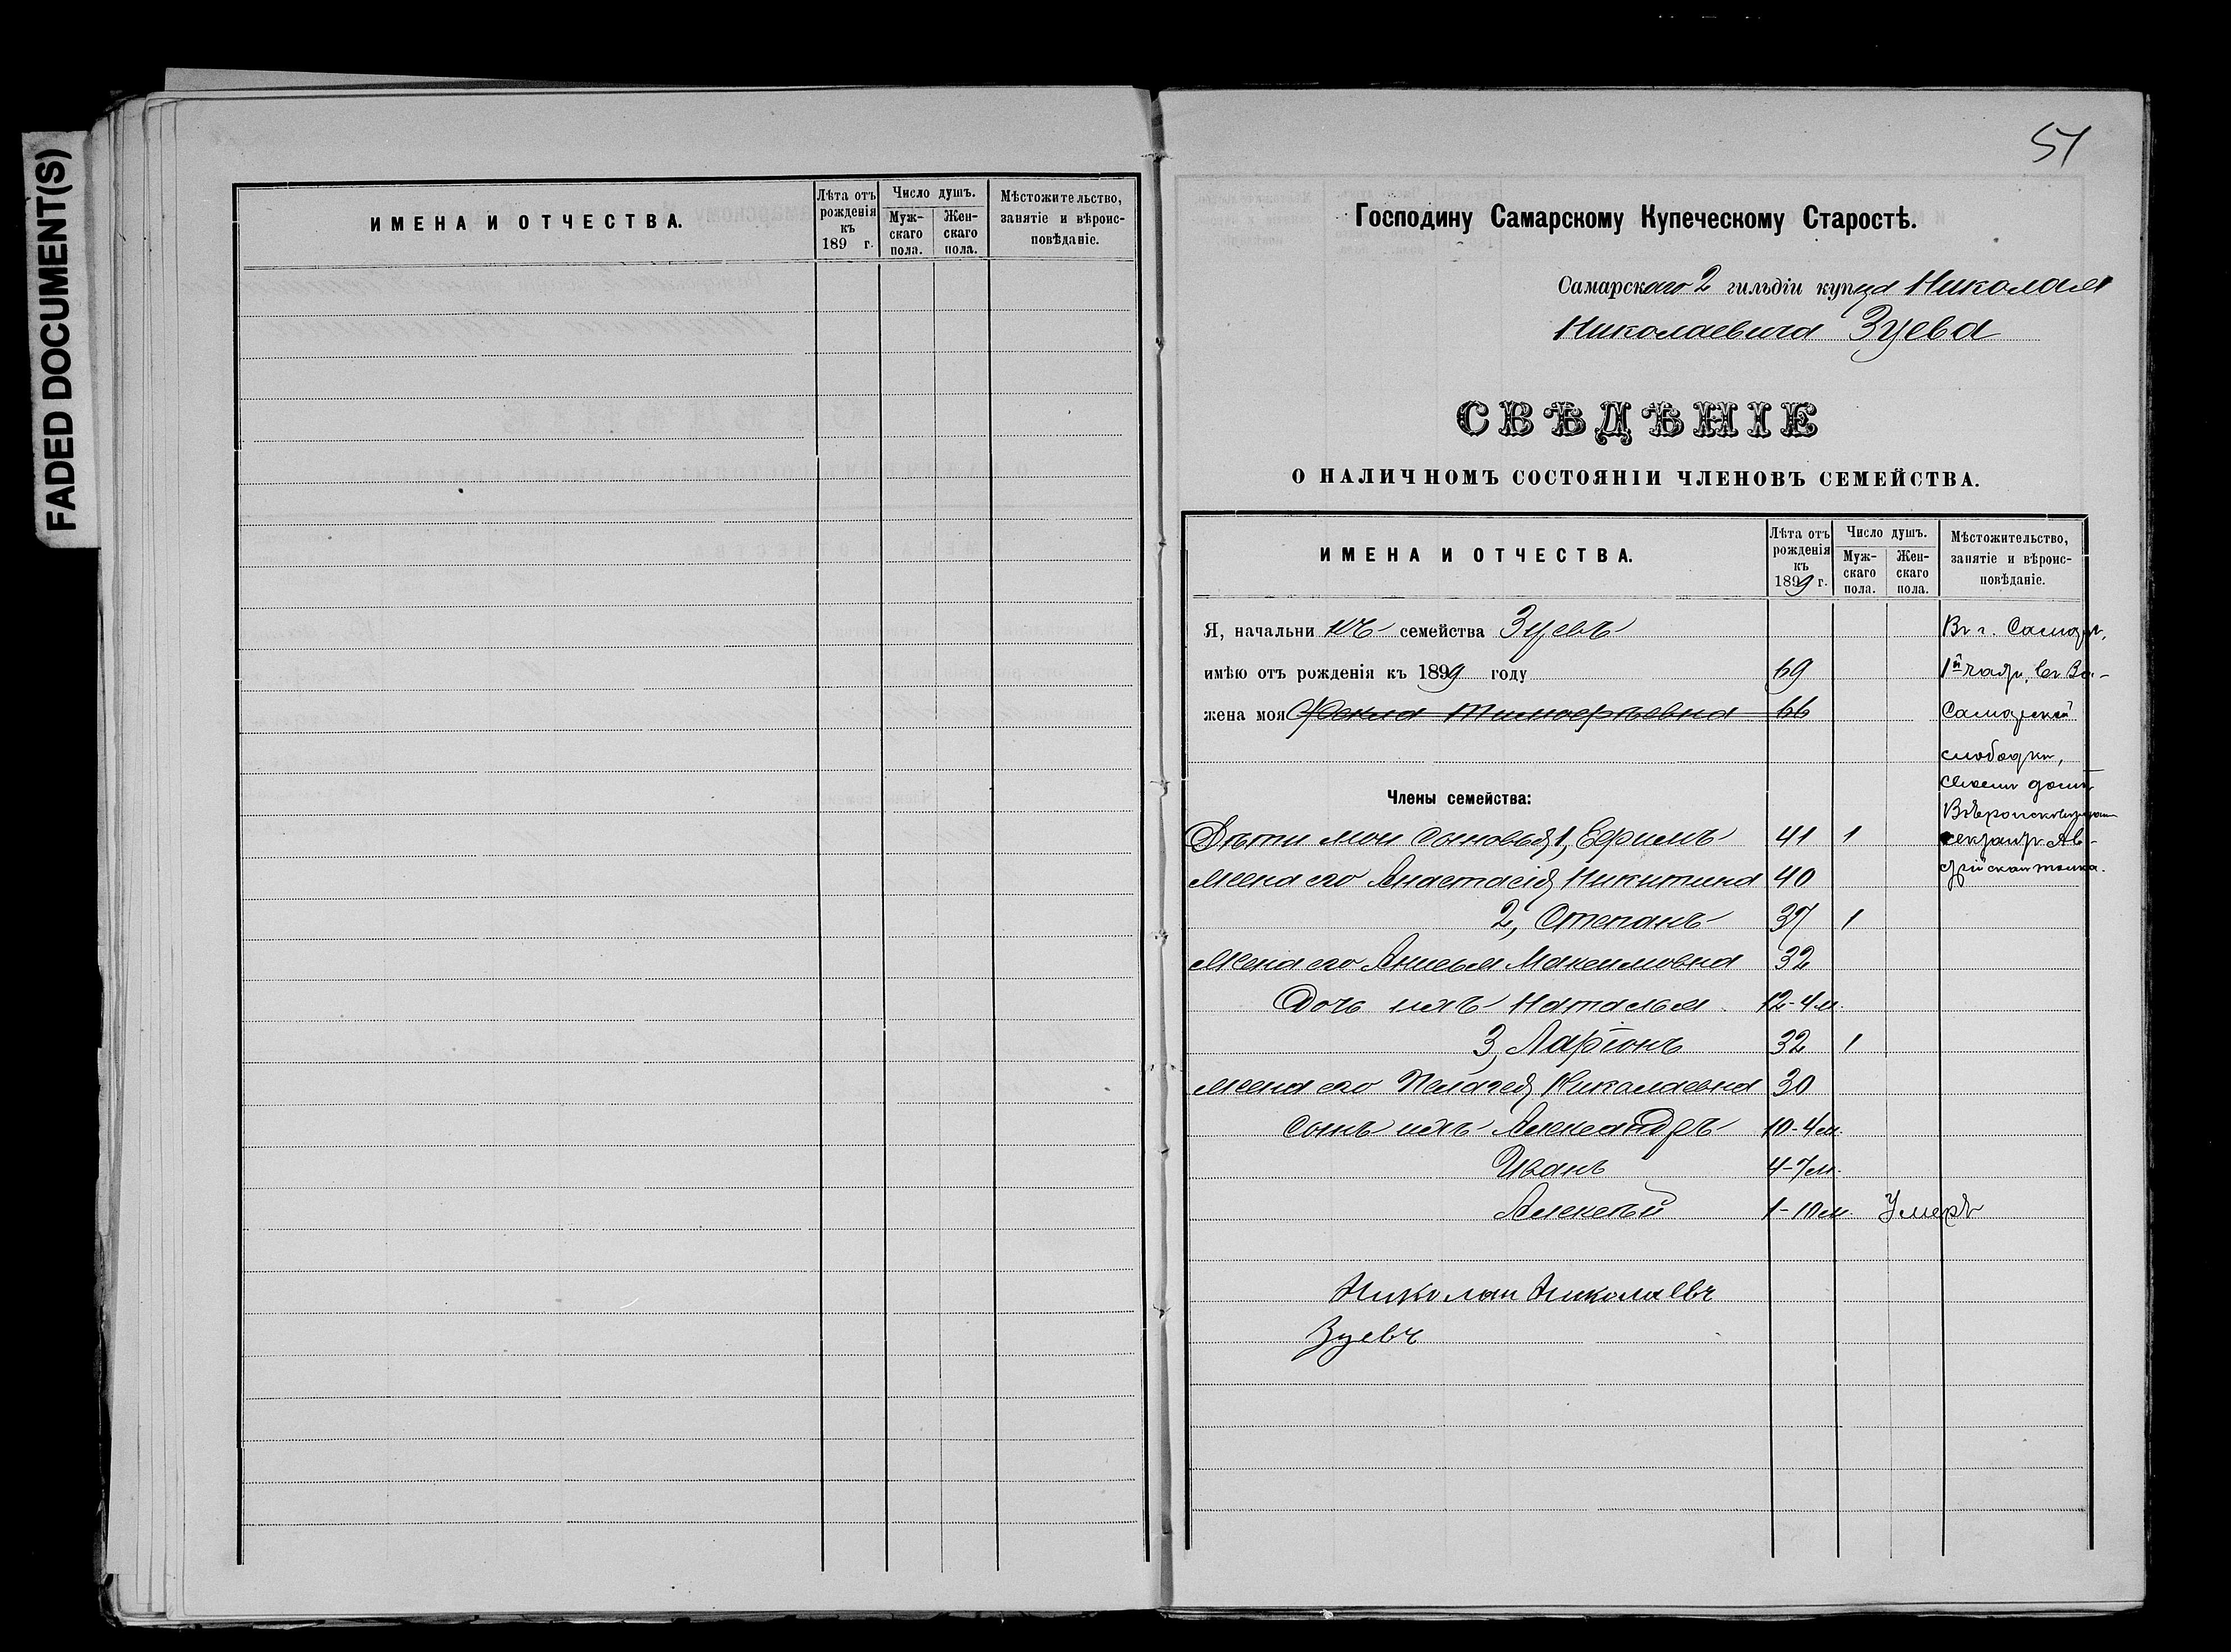 FADED DOCUMENT(S)
ИМЕНА И ОТЧЕСТВА.
Лѣта отъ рожденія къ 189 г.
Число душъ.
Муж-скаго пола.
Жен-скаго пола.
Мѣстожительство, занятіе и вѣроис-повѣданіе.
51
Господину Самарскому Купеческому Старостѣ.
Самарскаго 2 гильдіи купца Николая
Николаевича Зуева
СВѢДѢНІЕ
О НАЛИЧНОМЪ СОСТОЯНІИ ЧЛЕНОВЪ СЕМЕЙСТВА.
ИМЕНА И ОТЧЕСТВА.
Лѣта отъ рожденія къ 1899 г.
Число душъ.
Муж-скаго пола.
Жен-скаго пола.
Мѣстожительство, занятіе и вѣроис-повѣданіе.
Я, начальникъ семейства Зуевъ
имѣю отъ рожденія къ 1899 году 69
жена моя Фекла Тимофѣевна 66
Члены семейства:
Дѣти мои сыновья 1, Ефимъ 41 1
жена его Анастасія Никитина 40
2, Степанъ 37 1
Жена его Анисья Максимовна 32
Дочь ихъ Наталья 12-4 м.
3, Ларіонъ 32 1
жена его Пелагея Николаевна 30
Сынъ ихъ Александръ 10-4 м.
Иванъ 4-7 м.
Алексѣй 1-10 м. Умеръ
Въ г. Самарѣ,
1й части, въ За-
Самарской
слободки,
своемъ домѣ
Австрійскаго толка.
Николаи Николаевъ
Зуевъ